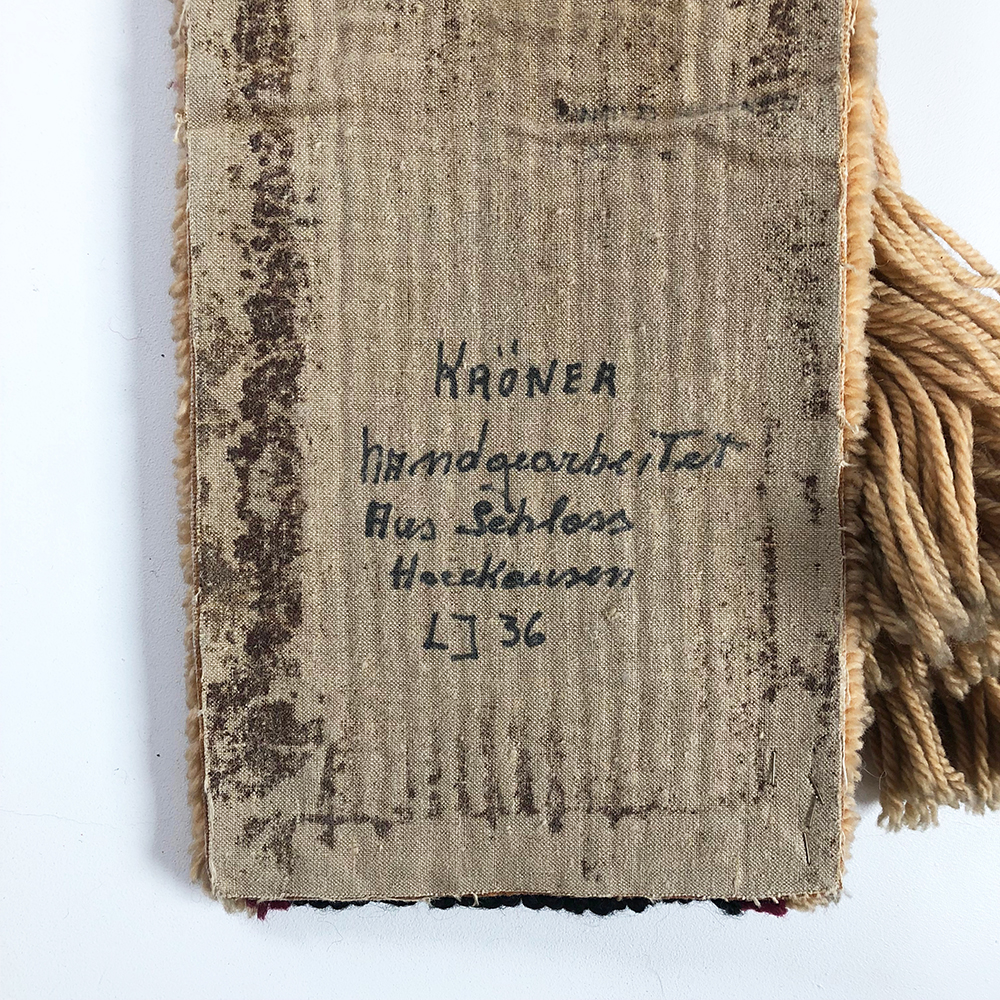 KRÖNER
handgearbeitet
Aus Schloss
LJ 36